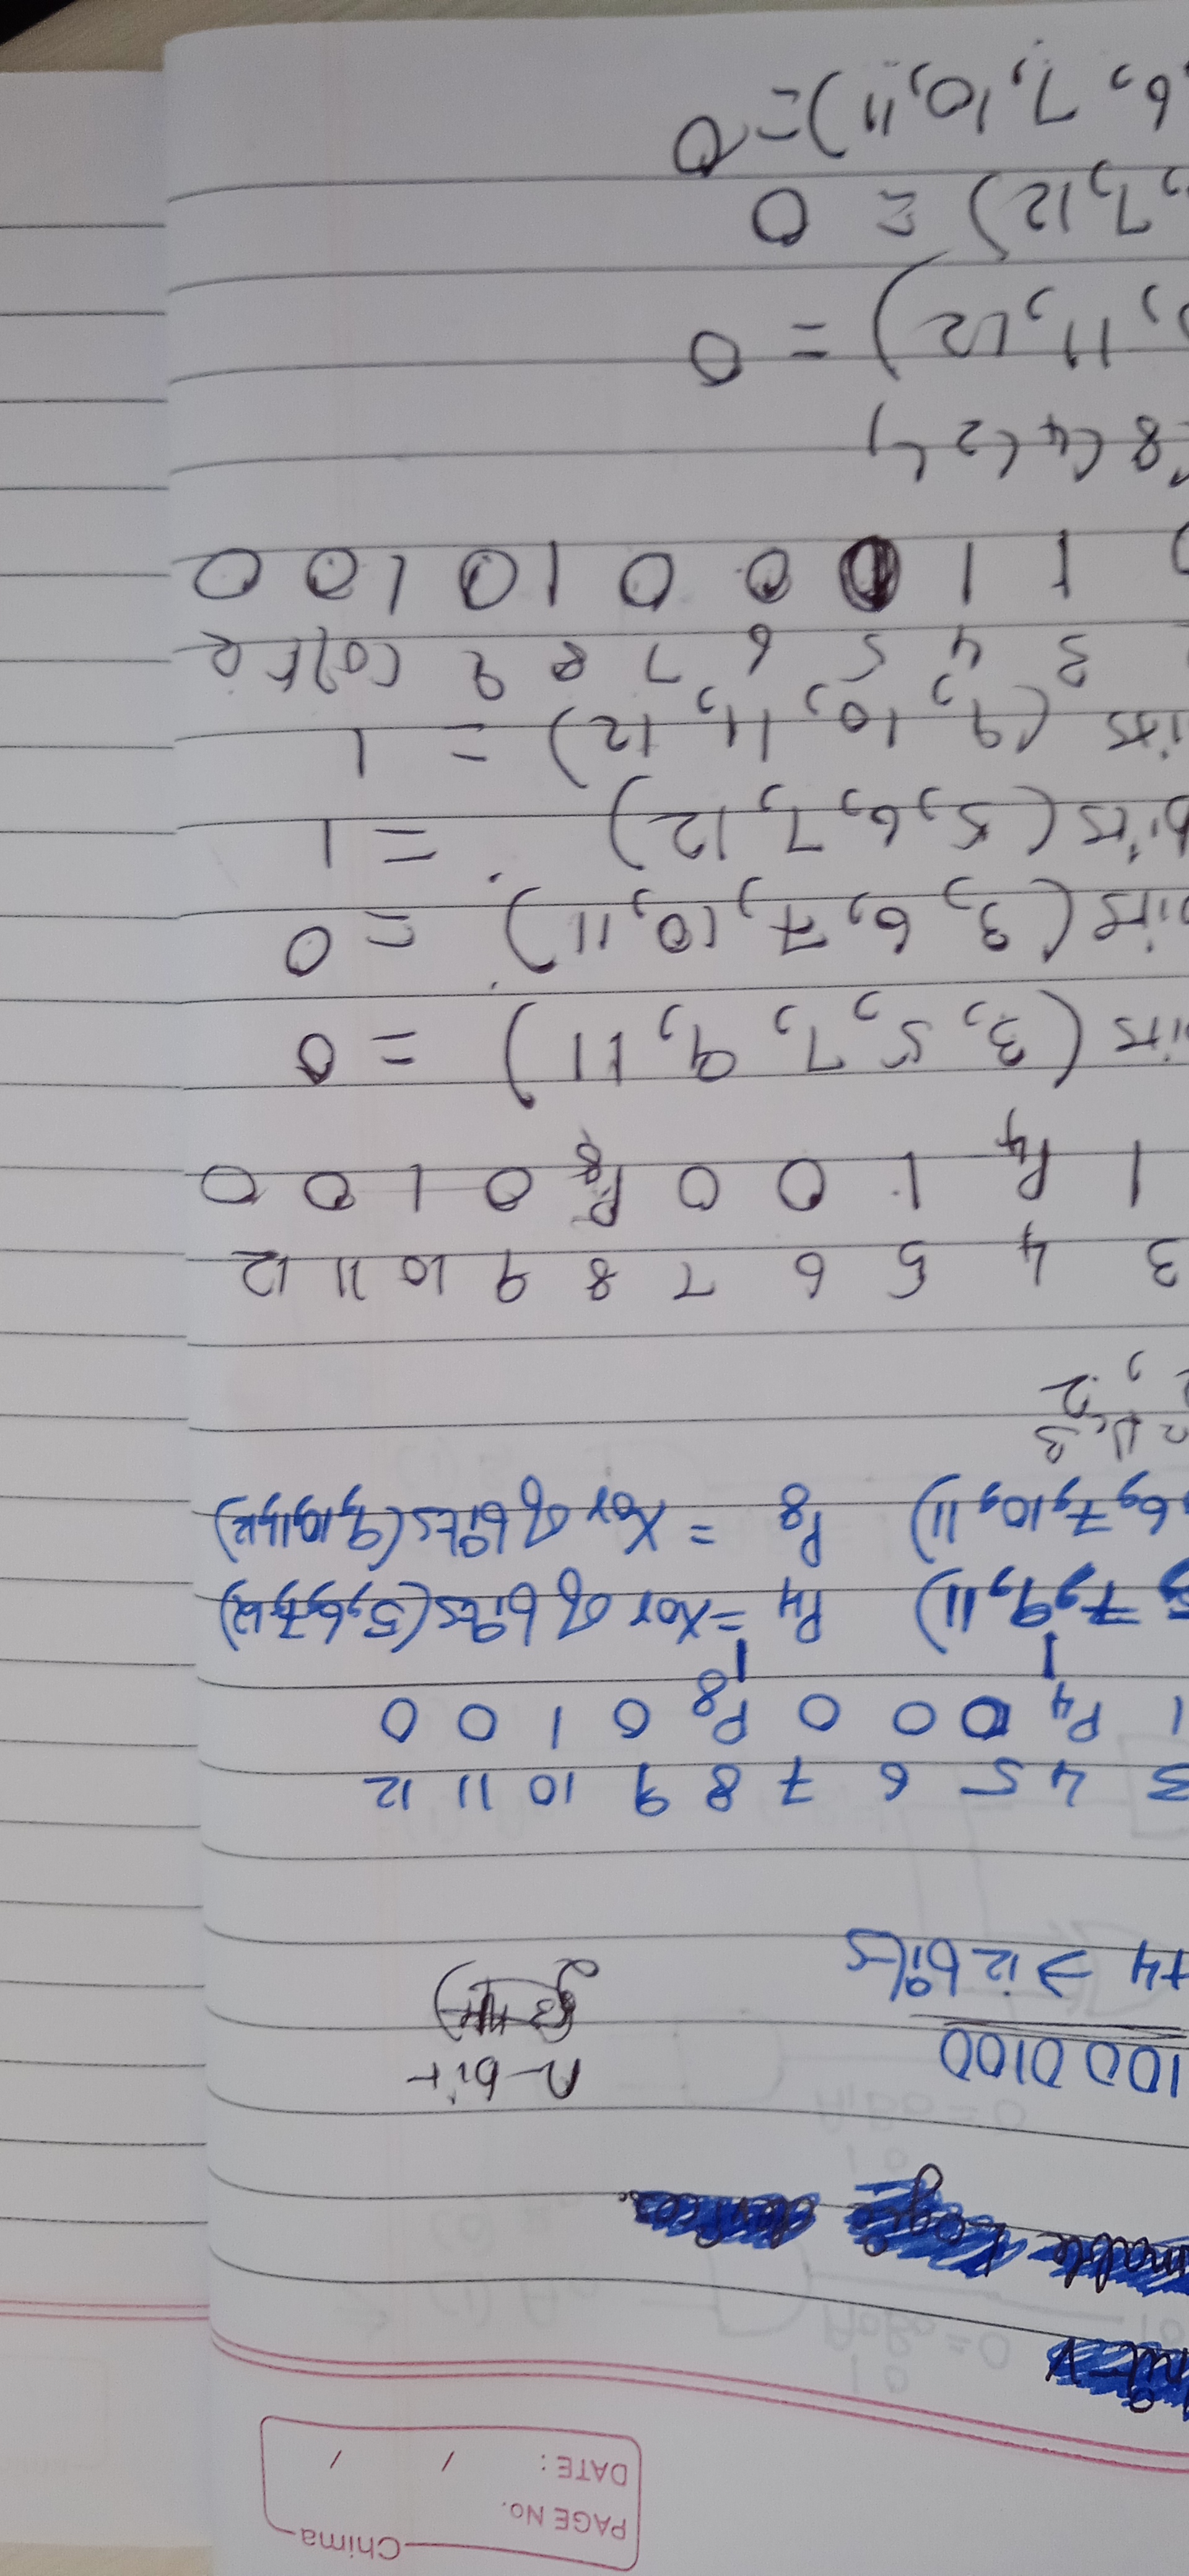 Chima
PAGE NO.
DATE: / /
nit-V
mable Logic devices.
1000100 n-bit
+4 → 12 bits
3 4 5 6 7 8 9 10 11 12
1 P4 0 0 0 P8 0 1 0 0
1 1
5, 7, 9, 11) P4 = Xor of bits (5,6,7,12)
6, 7, 10, 11) P8 = Xor of bits (9,10,11,12)
3
, 2
3 4 5 6 7 8 9 10 11 12
1 P4 1 0 0 P8 0 1 0 0
its (3, 5, 7, 9, 11) = 0
bits (3, 6, 7, 10, 11) = 0
bits (5, 6, 7, 12) = 1
its (9, 10, 11, 12) = 1
3 4 5 6 7 8 9 10 11 12
1 1 0 0 0 1 0 1 0 0
C8 C4 C2 C1
, 11, 12) = 0
, 7, 12) = 0
6, 7, 10, 11) = 0